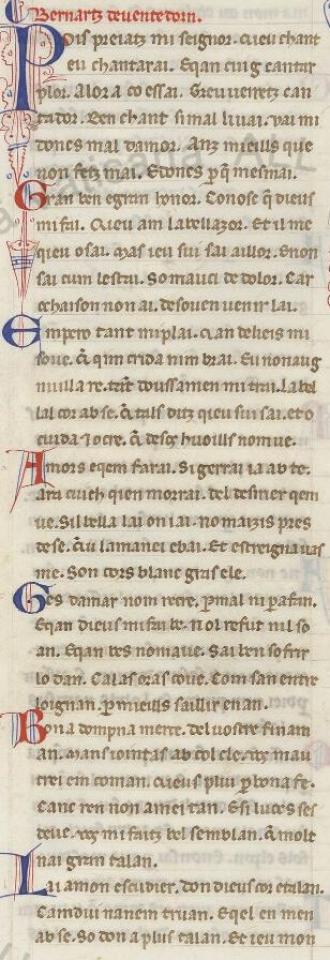 Bernartz deuentedorn.
Pois preiatz mi seignor. qieu chant
eu chantarai. Eqan cuig cantar
plor. Alor a co essai. Greu ueiretz can
tador. Ben chant si mal li uai. uai mi
doncs mal damor. Anz mieills que
non fetz mai. Edoncs per qe mesmai.
Gran ben egran honor. Conosc qe dieus
mi fai. Qieu am la bellazor. Et il me
qieu o sai. Mas ieu sui sai aillor. Enon
sai cum lestai. So mauci de dolor. Car
ochaison non ai. de souen uenir lai.
Empero tant mi plai. qan delieis mi
soue. Qe qim crida nim brai. Eu non aug
nuilla re. tant doussamen mi trai. la bel
lal cor ab se. Qe tals ditz qieu sui sai. eto
cuida et ocre. Qe dels huoills nom ue.
Amors eqem farai. Si gerrai ia ab te.
ara cuich qien morrai. del desirer qem
ue. Sil bella lai on iai. nomaizis pres
de se. Qiu la manei ebai. Et estreigna uas
me. Son cors blanc gras ele.
Ges damar nom recre. per mal ni per afan.
Eqan dieus mi fai be. nol refut nil so
an. Eqan bes nomaue. Sai ben sofrir
lo dan. Cal as oras coue. Com san entre
loignan. per mieills saillir enan.
Bona dompna merce. del uostre fin am
an. Mans iointas ab col cle. uos mau
trei em coman. Qieus pliu per bona fe.
Canc ren non amei tan. Esi luecs ses
deue. uos mi faitz bel semblan. Qe molt
nai gran talan.
Lai amon escudier. don dieus cor etalan.
Camdui nanem truan. Eqel en men
ab se. So don a plus talan. Et ieu mon